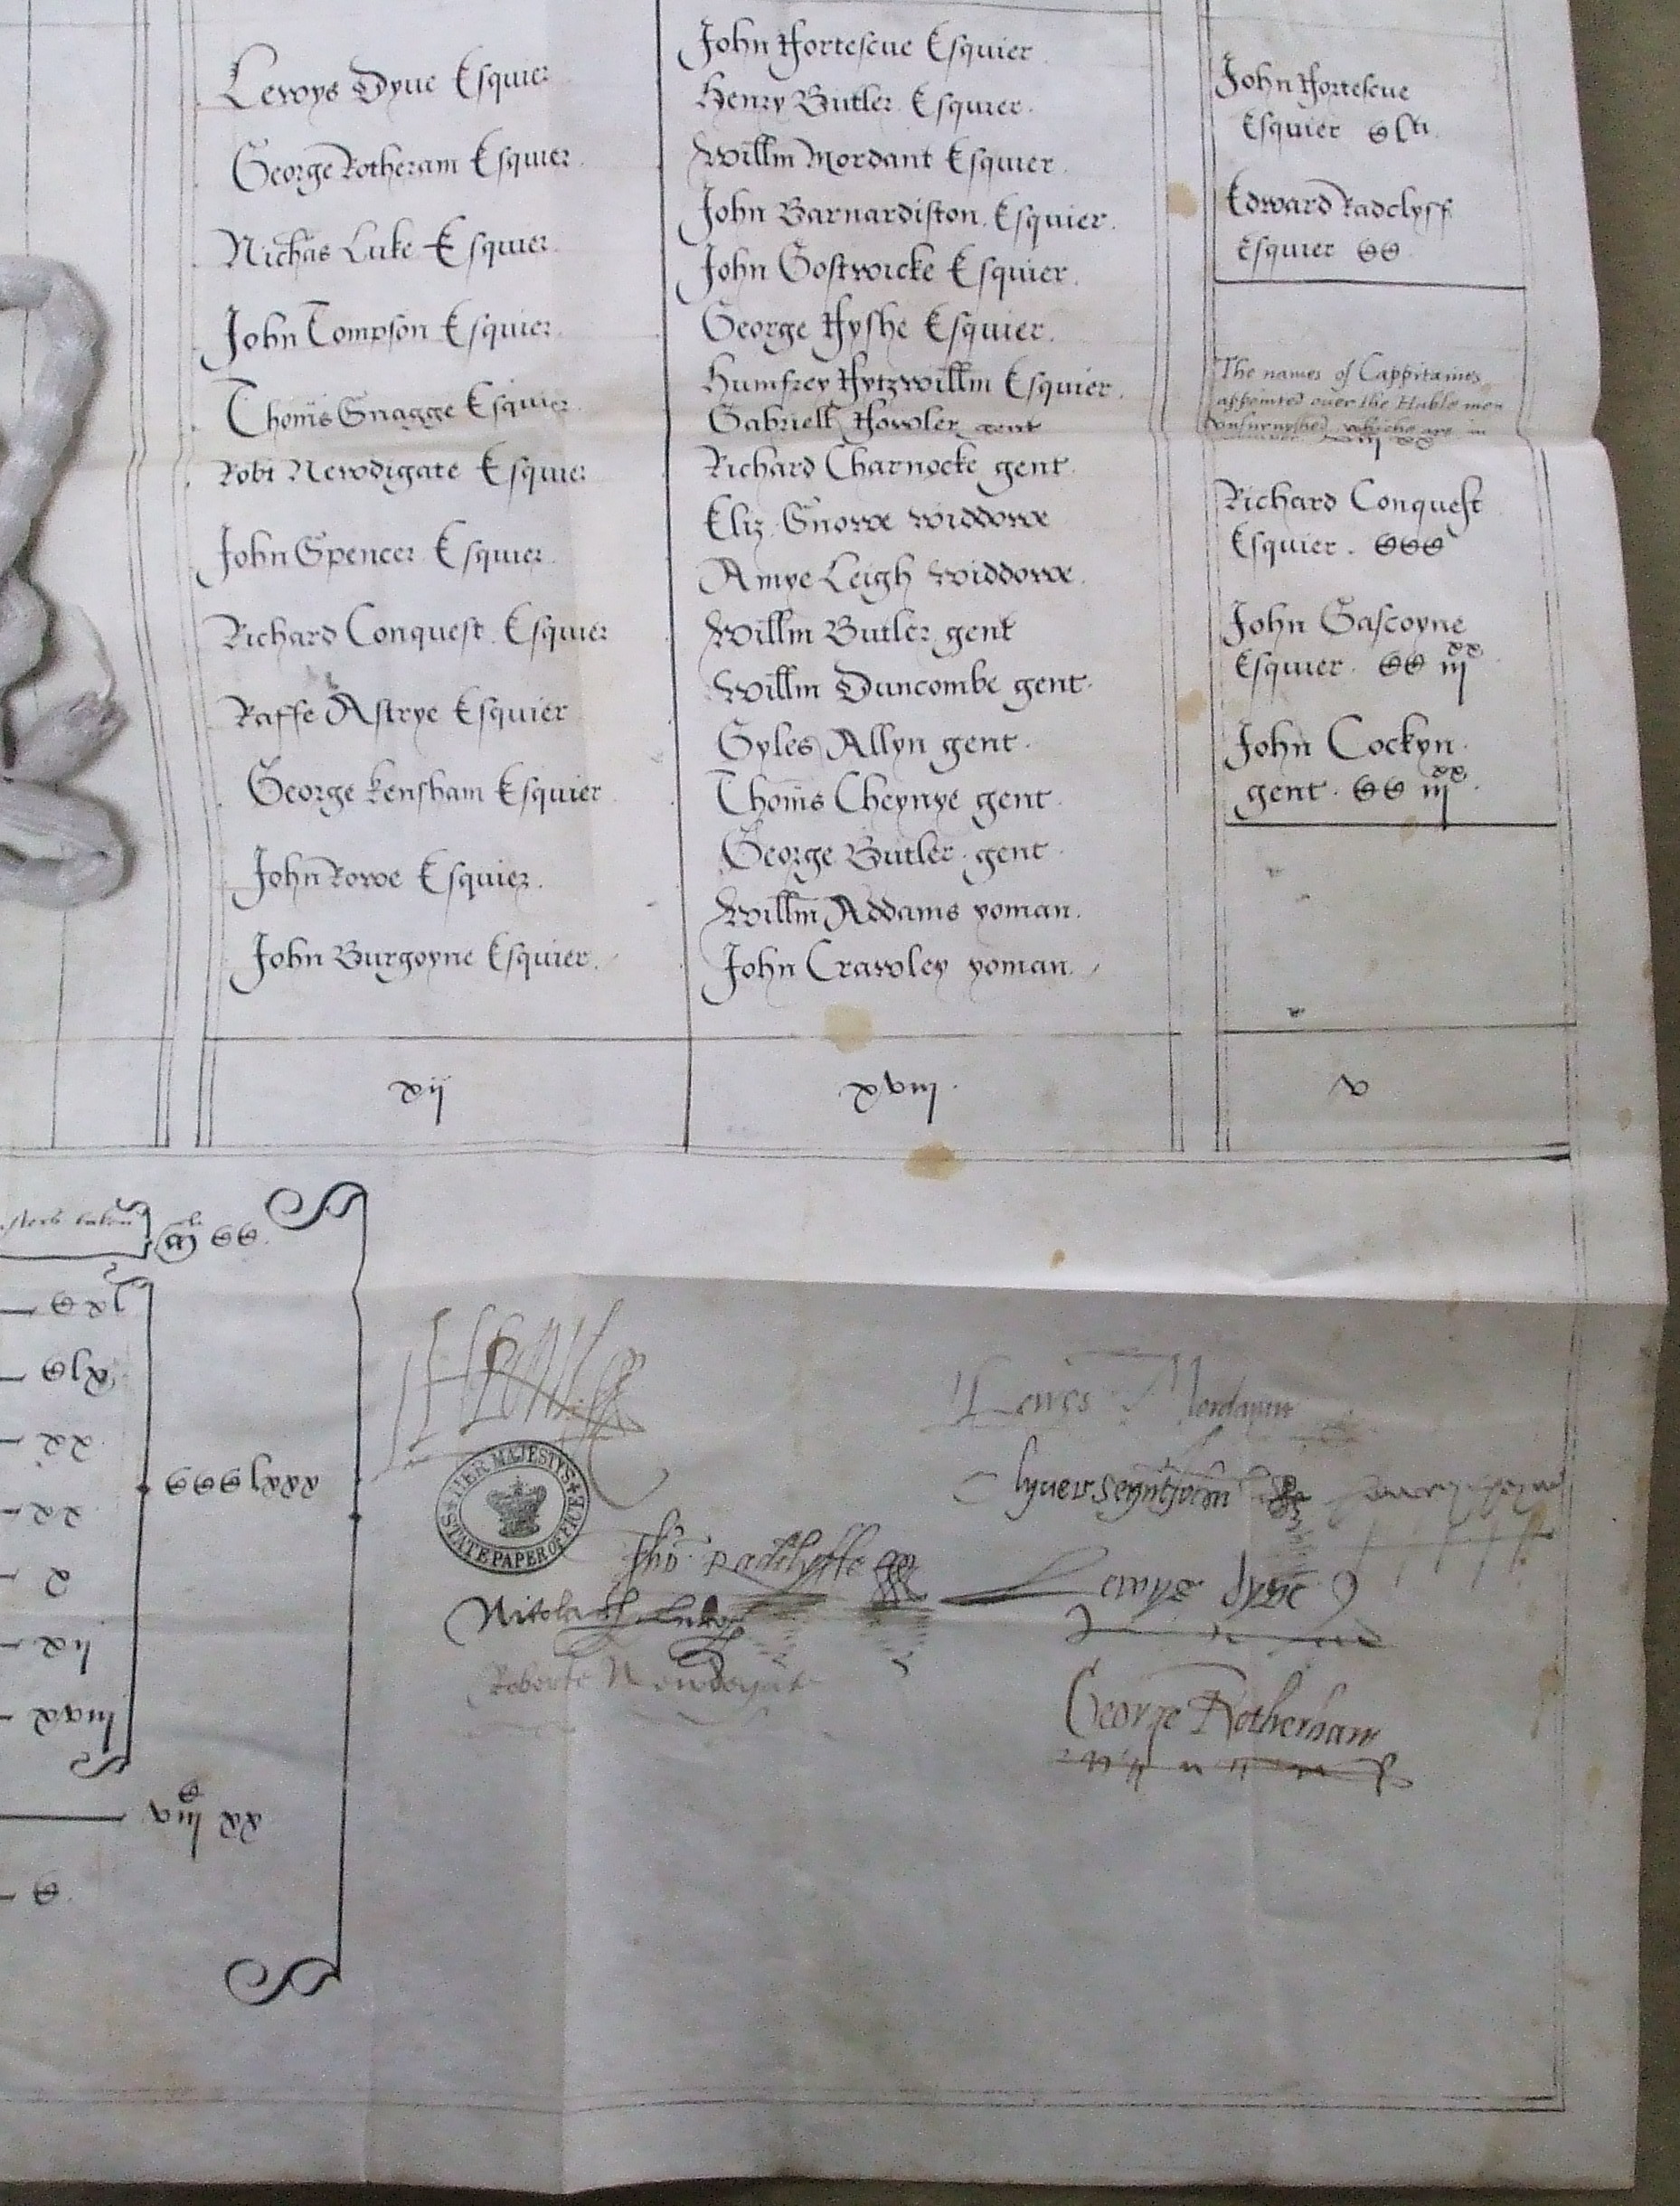 Lewys Dyue Esquier
George Rotheram Esquier
Nichãs Luke Esquier
John Tompson Esquier
Thom̃s Snagge Esquier
Robt Newdigate Esquier
John Spencer Esquier
Richard Conquest Esquier
Raffe Astrye Esquier
George Kensham Esquier
John Rowe Esquier.
John Burgoyne Esquier.
xij
John Fortescue Esquier
Henry Butler Esquier.
Willm̃ Mordant Esquier.
John Barnardiston. Esquier.
John Gostwicke Esquier.
George Fyshe Esquier.
Humfrey Fytzwillm̃ Esquier.
Gabriell Fowler gent
Richard Charnocke gent.
Eliz. Snowe widdowe
Amye Leigh widdowe.
Willm̃ Butler gent
Willm̃ Duncombe gent.
Gyles Allyn gent.
Thom̃s Cheynye gent.
George Butler. gent.
Willm̃ Addams yoman.
John Crawley yoman.
xviij.
John Fortescue
Esquier
Edward Radclyff
Esquier CC
The names of Cappitaines
appointed over the Hable men
vnfurnyshed whiche are in
Richard Conquest
Esquier. CCC
John Gascoyne
Esquier. CC iij xx
John Cockyn.
gent. CC iij xx.
v
CC.
xx
xx
x
CCC
C
HER MAJESTYS STATE PAPER OFFICE
Lewes Mordaunt
Olyver Seyntjohn
Tho. Radclyffe
Lewys dyve
Nicolas Luke
Roberte Newdegate
George Rotherham